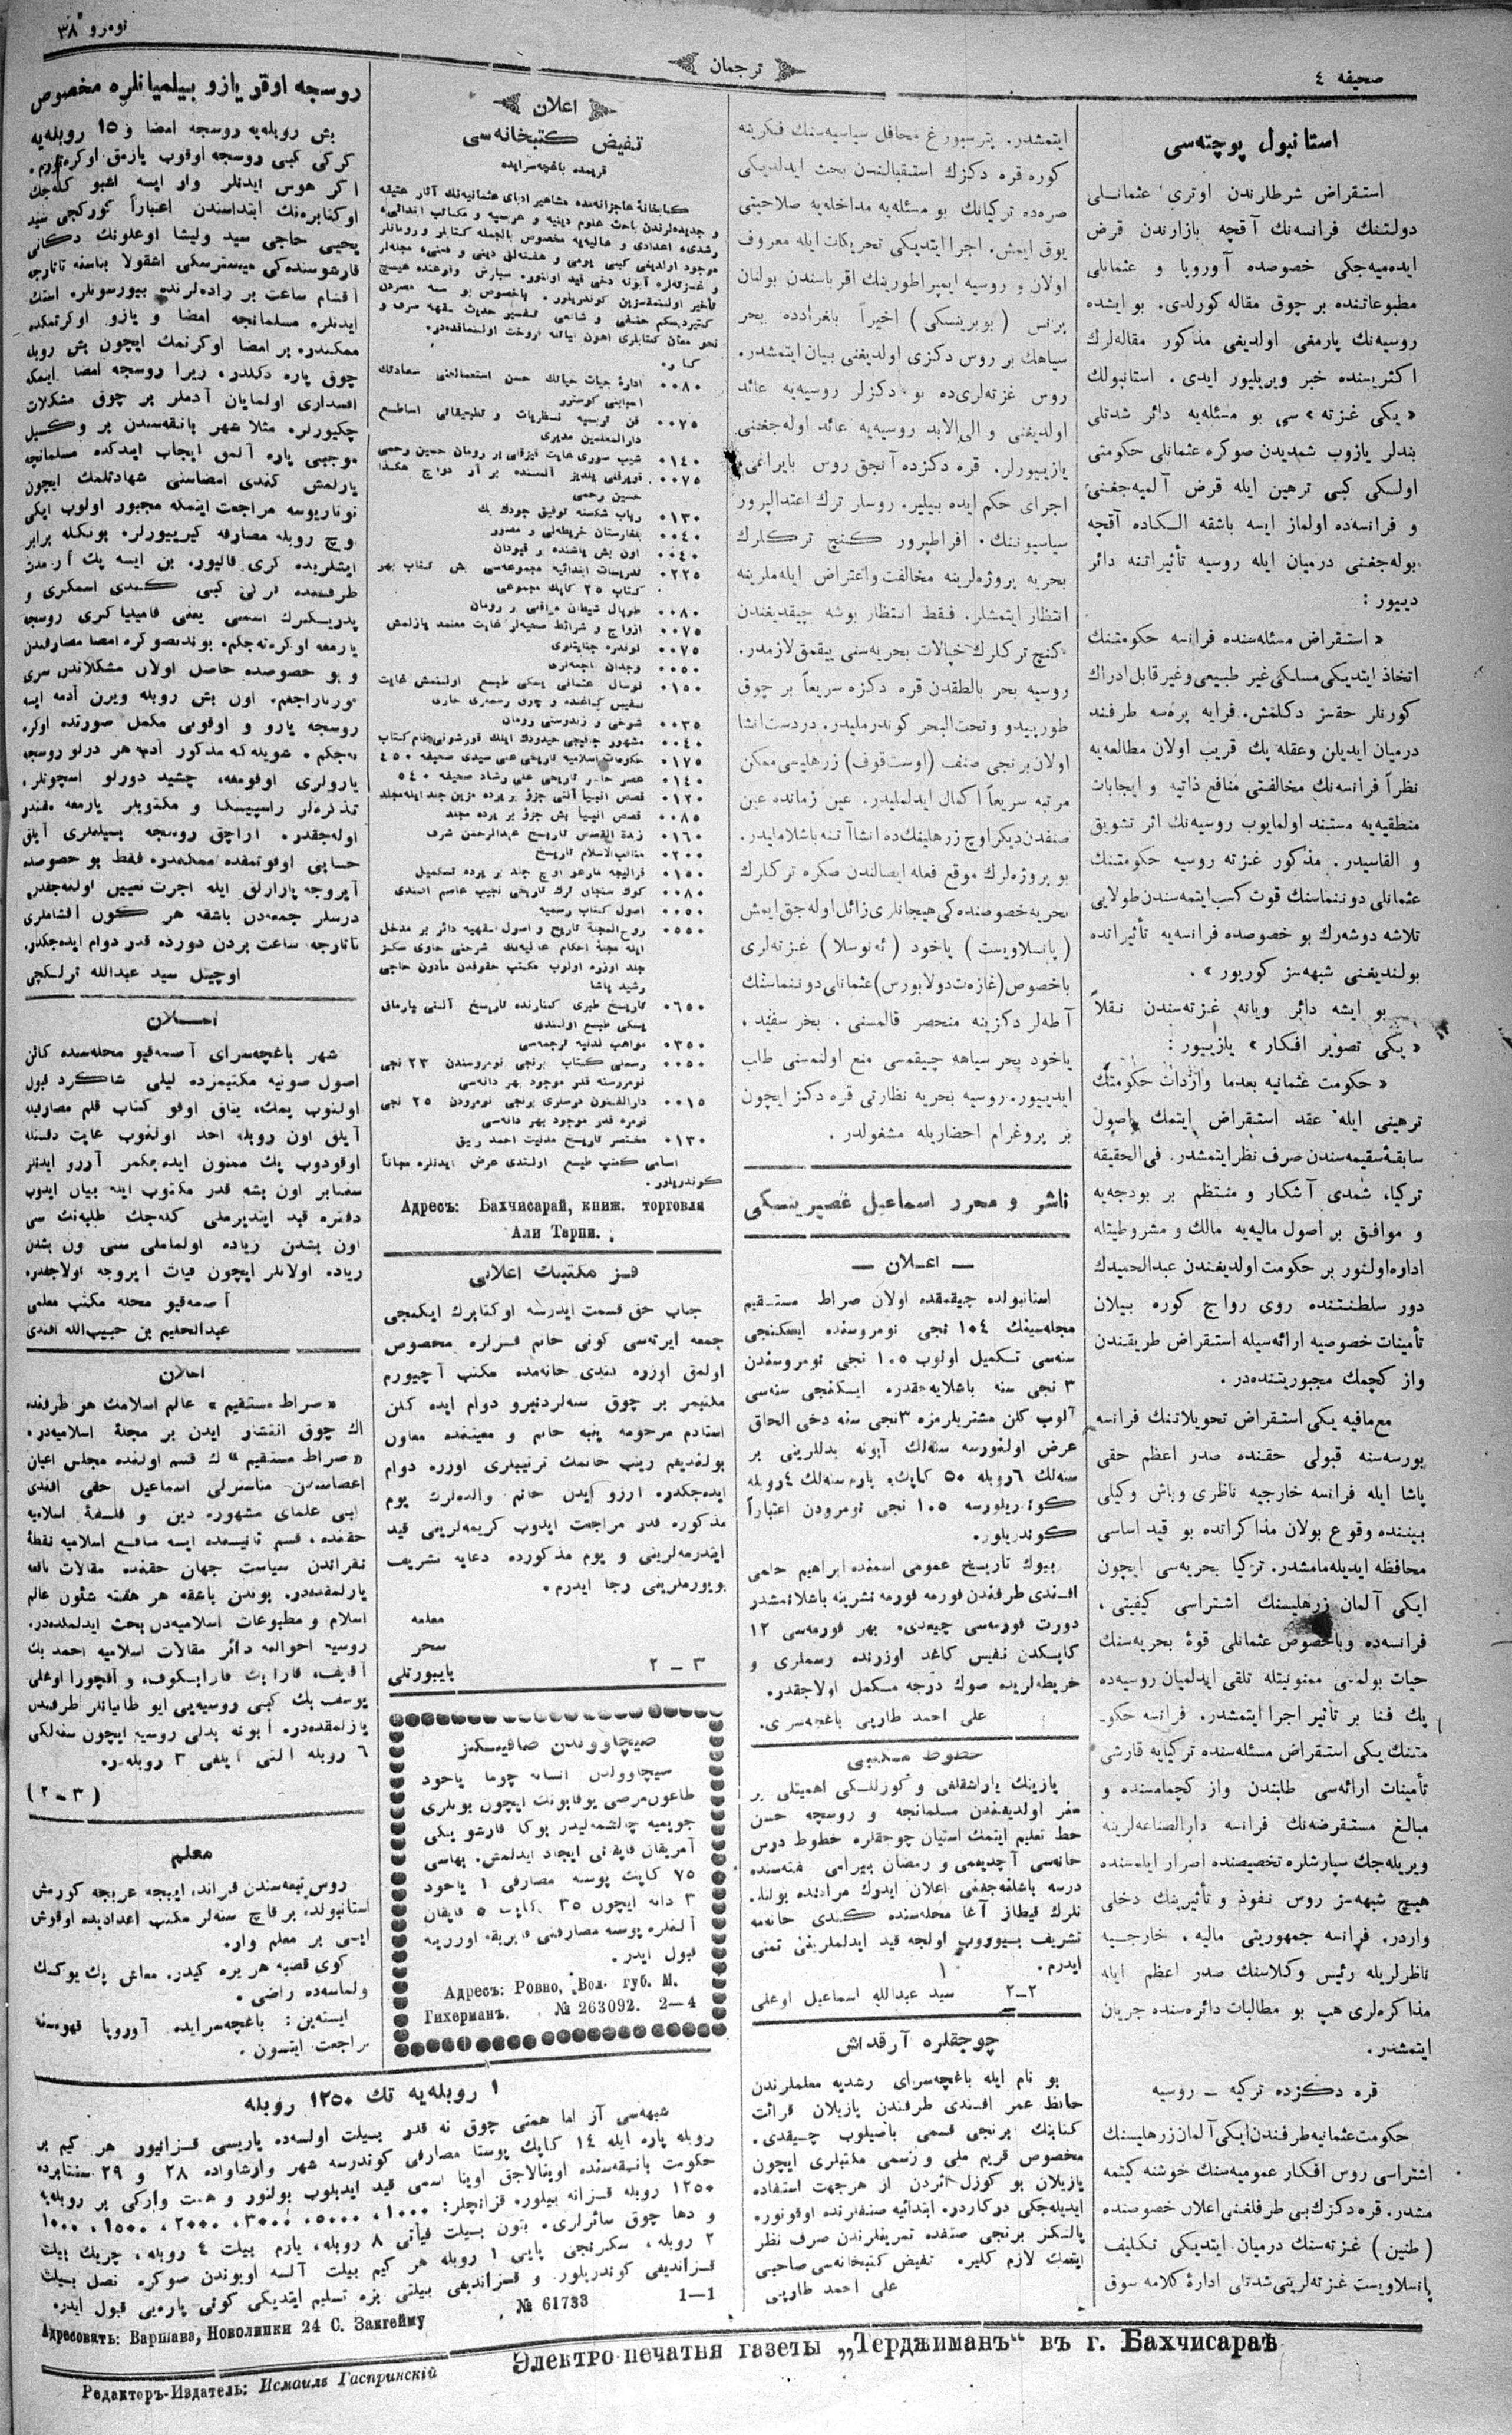 صحیفه ٤
ترجمان
نومرو ٣٨
استانبول پوچته‌سی
استقراض شرطلرندن اوتری عثمانلی
دولتنك فرانسه‌نك آقچه بازارندن قرض
ایده‌میه‌جكی خصوصده آوروپا و عثمانلی
مطبوعاتنده بر چوق مقاله كورلدی. بو ایشده
روسیه‌نك پارمغی اولدیغی مذكور مقاله‌لرك
اكثریسنده خبر ویریلیور ایدی. استانبولك
«یكی غزته» سی بو مسئله‌یه دائر شدتلی
بندلر یازوب شمدیدن صوكره عثمانلی حكومتی
اولكی كبی ترهین ایله قرض آلمیه‌جغنی
و فرانسه‌ده اولماز ایسه باشقه الكاده آقچه
بوله‌جغنی درمیان ایله روسیه تأثیراتنه دائر
دییور :
« استقراض مسئله‌سنده فرانسه حكومتنك
اتخاذ ایتدیكی مسلكی غیر طبیعی و غیر قابل ادراك
كورنلر حقسز دكلمش.
درمیان ایدیلن و عقله پك قریب اولان مطالعه‌یه
نظراً فرانسه‌نك مخالفتی منافع ذاتیه و ایجابات
منطقیه‌یه مستند اولمایوب روسیه‌نك اثر تشویق
و القاسیدر. مذكور غزته روسیه حكومتنك
عثمانلی دوننماسنك قوت كسب ایتمه‌سندن طولایی
تلاشه دوشه‌رك بو خصوصده فرانسه‌یه تأثیراتده
بولندیغنی شبهه‌سز كوریور» .
بو ایشه دائر ویانه غزته‌سندن نقلاً
« یكی تصویر افكار » یازییور :
« حكومت عثمانیه بعدما واردات حكومتك
ترهینی ایله عقد استقراض ایتمك اصول
سابقهٔ سقیمه‌سندن صرف نظر ایتمشدر. فی‌الحقیقه
تركیا، شمدی آشكار و منتظم بر بودجه‌یه
و موافق بر اصول مالیه‌یه مالك و مشروطیتله
اداره اولنور بر حكومت اولدیغندن عبدالحمیدك
دور سلطنتنده روی رواج كوره بیلان
تأمینات خصوصیه ارائه‌سیله استقراض طریقندن
واز كچمك مجبوریتنده‌در .
مع‌مافیه یكی استقراض تحویلاتنك فرانسه
بورسه‌سنه قبولی حقنده صدر اعظم حقی
پاشا ایله فرانسه خارجیه ناظری وباش وكیلی
بیننده وقوع بولان مذاكراتده بو قید اساسی
محافظه ایدیله‌مامشدر. تركیا بحریه‌سی ایچون
ایكی آلمان زرهلیسنك اشتراسی كیفیتی ،
فرانسه‌ده وباخصوص عثمانلی قوهٔ بحریه‌سنك
حیات بولمسی ممنونیتله تلقی ایدلمیان روسیه‌ده
پك فنا بر تأثیر اجرا ایتمشدر. فرانسه حكو-
متنك یكی استقراض مسئله‌سنده تركیایه قارشی
تأمینات ارائه‌سی طلبندن واز كچمامسنده و
مبالغ مستقرضه‌نك فرانسه دارالصناعه‌لرینه
ویریله‌جك سپارشلره تخصیصنده اصرار ایله‌مسنده
هیچ شبهه‌سز روس نفوذ و تأثیرینك دخلی
واردر. فرانسه جمهوریتی مالیه ، خارجیه
ناظرلریله رئیس وكلاسنك صدر اعظم ایله
مذاكره‌لری هپ بو مطالبات دائره‌سنده جریان
ایتمشدر .
قره دكزده تركیه ـ روسیه
حكومت عثمانیه طرفندن ایكی آلمان زرهلیسنك
اشتراسی روس افكار عمومیه‌سنك خوشنه كیتمه
مشدر. قره دكزك بی طرفلغنی اعلان خصوصنده
(طنین) غزته‌سنك درمیان ایتدیكی تكلیف
پانسلاویست غزته‌لرینی شدتلی ادارهٔ كلامه سوق
ایتمشدر. پترسبورغ محافل سیاسیه‌سنك فكرینه
كوره قره دكزك استقبالندن بحث ایدلدیكی
صره‌ده تركیانك بو مسئله‌یه مداخله‌یه صلاحیتی
یوق ایمش. اجرا ایتدیكی تحریكات ایله معروف
اولان و روسیه ایمپراطورینك اقرباسندن بولنان
پرنس (بوبرینسكی) اخیراً بلغرادده بحر
سیاهك بر روس دكزی اولدیغنی بیان ایتمشدر.
روس غزته‌لری‌ده بو دكزلر روسیه‌یه عائد
اولدیغنی و الی‌الابد روسیه‌یه عائد اوله‌جغنی
یازییورلر. قره دكزده آنجق روس بایراغی
اجرای حكم ایده بیلیر. روسلر ترك اعتدالپرور
سیاسیوننك ، افراطپرور كنج تركلرك
بحریه پروژه‌لرینه مخالفت واعتراض ایله‌ملرینه
انتظار ایتمشلر. فقط انتظار بوشه چیقدیغندن
كنج تركلرك خیالات بحریه‌سنی ییقمق لازمدر.
روسیه بحر بالطقدن قره دكزه سریعاً بر چوق
طورپیدو و تحت‌البحر كوندرملیدر. دردست انشا
اولان برنجی صنف (اوست‌قوف) زرهلیسی ممكن
مرتبه سریعاً اكمال ایدلملیدر. عین زمانده عین
صنفدن دیكر اوچ زرهلینك ده انشاآتنه باشلامالیدر.
بو پروژه‌لرك موقع فعله ایصالندن صكره تركلرك
بحریه خصوصنده‌كی هیجانلری زائل اوله‌جق ایمش
(پانسلاویست) یاخود (نه‌نوسلا) غزته‌لری
باخصوص (غازه‌ت دولا بورس) عثمانلی دوننماسنك
آطه‌لر دكزینه منحصر قالمسنی ، بحر سفید ،
یاخود بحر سیاهه چیقمسی منع اولنمسنی طلب
ایدییور. روسیه بحریه نظارتی قره دكز ایچون
بر پروغرام احضاریله مشغولدر .
ناشر و محرر اسماعیل غصپرینسكی
— اعلان —
استانبولده چیقمقده اولان صراط مستقیم
مجله‌سینك ١٠٤ نجی نومروسنده ایكنجی
سنه‌سی تكمیل اولوب ١٠٥ نجی نومروسندن
٣ نجی سنه باشلایه‌جقدر. ایكنجی سنه‌سی
آلوب كلن مشتریلرمزه ٣نجی سنه دخی الحاق
عرض اولنورسه سنه‌لك آبونه بدللرینی بر
سنه‌لك ٦روبله ٥٠ كاپك، یارم سنه‌لك ٤روبله
كوندریلورسه ١٠٥ نجی نومرودن اعتباراً
كوندریلور.
بیوك تاریخ عمومی اسمنده ابراهیم حلمی
افندی طرفندن فورمه فورمه نشرینه باشلانمشدر
دورت فورمه‌سی چیقدی. بهر فورمه‌سی ١٢
كاپكدن نفیس كاغد اوزرنده رسملری و
خریطه‌لریده صوك درجه مكمل اولاجقدر.
علی احمد طارپی باغچه‌سرای.
خطوط مكتبی
یازینك یاراشقلغی و كوزللكی اهمیتلی بر
هنر اولدیغندن مسلمانجه و روسچه حسن
خط تعلیم ایتمك استیان چوجقلره خطوط درس
خانه‌سی آچدیغمی و رمضان بیرامی هفته‌سنده
درسه باشلنه‌جغنی اعلان ایدرك مرادنده بولنا-
نلرك قیطاز آغا محله‌سنده كندی حانه‌مه
تشریف بیوروب اولجه قید ایدلملرینی تمنی
ایدرم .
٢–٢ سید عبدالله اسماعیل اوغلی
چوجقلره آرقداش
بو نام ایله باغچه‌سرای رشدیه معلملرندن
حافظ عمر افندی طرفندن یازیلان قرائت
كتابنك برنجی قسمی باصیلوب چیقدی.
مخصوص قریم ملی و رسمی مكتبلری ایچون
یازیلان بو كوزل اثردن از هرجهت استفاده
ایدیله‌جكی دركاردر. ابتدائیه صنفلرنده اوقونور.
یالنكز برنجی صنفده تمرینلرندن صرف نظر
ایتمك لازم كلیر. تفیض كتبخانه‌سی صاحبی
علی احمد طارپی
اعلان
تفیض كتبخانه‌سی
قریمده باغچه‌سرایده
كتابخانهٔ عاجزانه‌مده مشاهیر ادبای عثمانیه‌نك آثار عتیقه
و جدیده‌لرندن باحث علوم دینیه و عربیه و مكاتب ابتدائی،
رشدی، اعدادی و عالیه‌یه مخصوص بالجمله كتابلر و رومانلر
موجود اولدیغی كبی یومی و هفته‌لق دینی و فنی، مجله‌لر
و غزته‌لره آبونه دخی قید اولنور. سپارش وقوعنده هیچ
تأخیر اولنمقسزین كوندریلور. باخصوص بو سنه مصردن
كتیردیكم حنفی و شافعی تفسیر حدیث فقهه صرف و
نحو معان كتابلری اهون فیاتله فروخت اولنماقده‌در.
٠٠٨٠ ادارهٔ حیات حیالك حسن استعمالنی سعادتك
اسبابنی كوسترر
٠٠٧٥ فن تربیه نظریات و تطبیقاتی اساطع
دارالمعلمین مدیری
٠١٤٠ شیپ سوری غایت قیزقلی بر رومان حسین رحمی
٠٠٧٥
حسین رحمی
٠١٣٠ رباب شكسته توفیق چودت بك
٠٠٤٠ بلغارستان خریطه‌لی و مصور
٠٠٤٠ اون بش یاشنده بر قپودان
٠٢٢٥ تدریسات ابتدائیه مجموعه‌سی بش كتاب بهر
كتاب ٢٥ كاپك مجموعی
٠٠٨٠ طوپال شیطان مراقلی بر رومان
٠٠٧٥ ازواج و شرائط صحیه‌لر غایت معتمد یازلمش
٠٠٧٥ لوندره جنایتلری
٠٠٥٠ وجدان
٠١٥٠ نوسال عثمانی یسكی طبع اولنمش غایت
نفیس كاغده و چوق رسملری حاوی
٠٠٣٥ شوخی و زبدوستی رومان
٠٠٤٠
٠١٧٥ حكومات اسلامیه تاریخی علی سیدی صحیفه ٤٥٠
٠١٤٠ عصر حاضر تاریخی علی رشاد صحیفه ٥٤٠
٠١٢٠ قصص انبیا آلتی جزؤ بر یرده مزین جلد ایله مجلد
٠٠٨٥ قصص انبیا بش جزؤ بر یرده مجلد
٠١٦٠ زبدة القصص تاریخ عبدالرحمن شرف
٠٢٠٠ مناقب‌الاسلام تاریخ
٠١٥٠ قرالیچه مارغو اوچ جلد بر یرده تكمیل
٠٠٨٠ كوك سنجاق ترك تاریخی نجیب عاصم افندی
٠٠٥٠ اصول كتاب رسمیه
٠٥٥٠ روح‌المجلة تاریخ و اصول فقهیه دائر بر مدخل
ایله مجلهٔ احكام عدلیه‌نك شرحنی حاوی سكز
جلد اوزره اولوب مكتب حقوقدن مأذون حاجی
رشید پاشا
٠٦٥٠ تاریخ طبری كنارنده تاریخ آلتی پارماق
یسكی طبع اولندی
٠٣٥٠ مواهب لدنیه ترجمه‌سی
٠٠٥٠ رسملی كتاب برنجی نومروسندن ٢٣ نجی
نومروسنه قدر موجود بهر دانه‌سی
٠٠١٥ دارالفنون درسلری برنجی نومرودن ٢٥ نجی
نومره قدر موجود بهر دانه‌سی
٠١٣٠ مختصر تاریخ مدنیت احمد رفیق
اسامی كتب طبع اولندی عرض ایدنلره مجاناً
كوندریلور.
Адресъ: Бахчисарай, книж. торговля
Али Тарпи.
قز مكتبنك اعلانی
جناب حق قسمت ایدرسه اوكتابرك ایكنجی
جمعه ایرته‌سی كونی خانم قزلره مخصوص
اولمق اوزره كندی خانه‌مده مكتب آچیورم
مكتبمز بر چوق سنه‌لردنبرو دوام ایده كلن
استادم مرحومه پنبه خانم و معیننده معاون
بولندیغم زینب خانمك ترتیبلری اوزره دوام
ایده‌جكدر، ارزو ایدن خانم والده‌لرك یوم
مذكوره قدر مراجعت ایدوب كریمه‌لرینی قید
ایتدرمه‌لرینی و یوم مذكورده دعایه تشریف
بویورملرینی رجا ایدرم .
معلمه
سحر
٣ – ٢ پایبورتلی
صیچاووندن صاقینكز
سیچاوولدن انسانه چوما یاحود
طاعون مرضی یوقابونت ایچون بونلری
جویمیه چالشمه‌لیدر بوكا قارشو یكی
آمریقان قاپقنی ایجاد ایدلمش. بهاسی
٧٥ كاپك پوسته مصارفی ١ یاحود
٣ دانه ایچون ٣٥ كاپك ٥ قاپقان
آلنلره پوسته مصارفنی فابریقه اوزرینه
قبول ایدر .
Адресъ: Ровно, Вол. губ. М.
Гихерманъ. № 263092. 2—4
روسجه اوقو یازو بیلمیانلره مخصوص
بش روبله‌یه روسجه امضا و ١٥ روبله‌یه
كركی كبی روسجه اوقوب یازمق اوكره‌تورم.
اكر هوس ایدنلر وار ایسه اشبو كله‌جك
اوكتابره‌نك ابتداسندن اعتباراً كوركجی سید
یحیی حاجی سید ولیشا اوغلونك دكانی
قارشوسنده‌كی میسترسكی اشقولا بناسنه تاتارجه
آقشام ساعت بر راده‌لرنده بیورسونلر. استك
ایدنلره مسلمانجه امضا و یازو اوكرتمكده
ممكندر. بر امضا اوكرنمك ایچون بش روبله
چوق پاره دكلدر، زیرا روسجه امضا ایتمكه
اقتداری اولمایان آدملر بر چوق مشكلات
چكیورلر. مثلا شهر بانقه‌سندن بر وكسل
موجبی پاره آلمق ایجاب ایدكده مسلمانچه
یازلمش كندی امضاسنی شهادتلمك ایچون
نوتاریوسه مراجعت ایتمكه مجبور اولوب ایكی
وچ روبله مصارفه كیرییورلر. بونكله برابر
ایشلریده كری قالیور. بن ایسه پك آز مدت
ظرفنده قرلی كبی كندی اسمكزی و
پدریكزك اسمنی یعنی فامیلیاكزی روسجه
یازمغه اوكره‌ته‌جكم، بوندنصوكره امضا مصارفندن
و بو خصوصده حاصل اولان مشكلاتدن سزی
قورتاراجغم. اون بش روبله ویرن آدمه ایسه
روسجه یازو و اوقونی مكمل صورتده اوكره
ته‌جكم. شویله‌كه مذكور آدم هر درلو روسجه
یازولری اوقومغه، چشید دورلو اسچوتلر،
تذكره‌لر راسپیسكا و مكتوبلر یازمغه مقتدر
اوله‌جقدر. ازاچق روسجه بیلنلری آیلق
حسابی اوقوتمقده ممكندر. فقط بو حصوصده
آیروجه پازارلق ایله اجرت تعیین اولنه‌جقدر،
درسلر جمعه‌دن باشقه هر كون آقشاملری
تاتارجه ساعت بردن دورده قدر دوام ایده‌جكدر.
اوچیتل سید عبدالله ترلسكچی
اعلان
شهر باغچه‌سرای آصمه‌قیو محله‌سنده كائن
اصول صوتیه مكتبمزده لیلی شاكرد قبول
اولنوب یمك، یتاق اوقو كتاب قلم مصارفیله
آیلق اون روبله اخذ اولنوب غایت دقتله
اوقودوب پك ممنون ایده‌جكمز آرزو ایدنلر
سنتابر اون بشه قدر مكتوب ایله بیان ایدوب
دفتره قید ایتدیرملی كله‌جك طلبه‌نك سنی
اون بشدن زیاده اولماملی سنی ون بشدن
زیاده اولانلر ایچون فیات ایروجه اولاجقدر
آصمه‌قیو محله مكتب معلمی
عبدالحلیم بن حبیب‌الله افندی
اعلان
«صراط مستقیم» عالم اسلامك هر طرفنده
اك چوق انتشار ایدن بر مجلهٔ اسلامیه‌در،
«صراط مستقیم» ك قسم اولنده مجلس اعیان
اعضاسندن مناسترلی اسماعیل حقی افندی
كبی علمای مشهوره دین و فلسفهٔ اسلامیه
حقنده، قسم ثانیسنده ایسه منافع اسلامیه نقطهٔ
نظراندن سیاست جهان حقنده مقالات نافعه
یازلمقده‌در. بوندن باشقه هر هفته شئون عالم
اسلام و مطبوعات اسلامیه‌دن بحث ایدلمكده‌در.
روسیه احوالنه دائر مقالات اسلامیه احمد بك
آقیف، قارا بك قارابكوف، و آقچورا اوغلی
یوسف بك كبی روسیه‌یی ایو طانیانلر طرفندن
یازلمقده‌در. آبونه بدلی روسیه ایچون سنه‌لكی
٦ روبله التی ایلغی ٣ روبله‌در.
(٣–٢)
معلم
روس تبعه‌سندن قراند، ایپیجه عربجه كورمش
استانبولده بر قاچ سنه‌لر مكتب اعدادیده اوقومش
ایی بر معلم وار.
كوی قصبه هر یره كیدر. معاش پك یوكسك
ولماسه‌ده راضی .
ایسته‌ین: باغچه‌سرایده آوروپا قهوسنه
مراجعت ایتسون .
١ روبله‌یه تك ١٢٥٠ روبله
شبهه‌سی آز اما همتی چوق نه قدر بیلت اولسه‌ده یاریسی قزانیور هر كیم بر
روبله پاره ایله ١٤ كاپك پوستا مصارفی كوندرسه شهر وارشاواده ٢٨ و ٢٩ سنتابرده
حكومت بانقه‌سنده اوینالاجق اوینا اسمی قید ایدیلوب بولنور و همت وارکی بر روبله‌یه
١٢٥٠ روبله قزانه بیلور. قزانچلر: ١٠٠٠، ٥٠٠٠، ٣٠٠٠، ٢٠٠٠، ١٥٠٠، ١٠٠٠
و دها چوق سائرلری. بتون بیلت فیأتی ٨ روبله، یارم بیلت ٤ روبله، چریك بیلت
٢ روبله، سكزنجی پایی ١ روبله هر كیم بیلت آلسه اویوندن صوكره نصل بیلت
قزاندیغی كوندریلور. و قزاندیغی بیلتی بزه تسلیم ایتدیكی كونی پاره‌یی قبول ایدر.
1—1 № 61733
Адресовать: Варшава, Новолипки 24 С. Зангейму
Электро-печатня газеты „Терджиманъ“ въ г. Бахчисараѣ
Редакторъ-Издатель: Исмаилъ Гаспринскій